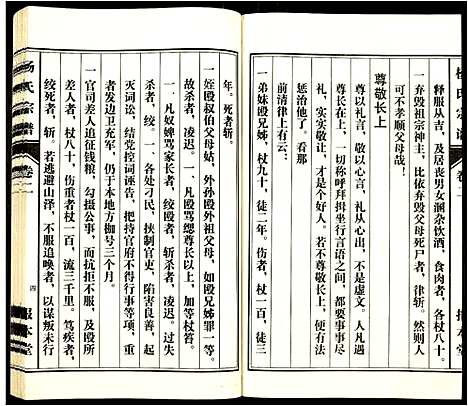 杨氏宗谱
卷二
释服从吉，及居丧男女溷杂饮酒，食肉者，各杖八十。
一弃毁祖宗神主，比依弃毁父母死尸者，律斩。然则人
可不孝顺父母哉！
尊敬长上
尊以礼言，敬以心言，礼从心出，不是虚文。人人凡事
尊长在上，一切称呼拜揖坐行言语之间，都要事事尽
实，实实敬让，才是个好人。若不尊敬长上，便有法
惩治他了。看那
前清律上有云：
一弟妹殴兄姊，杖九十，徒二年。伤者，杖一百，徒三
年。死者斩。
一侄殴叔伯父母姑，外孙殴外祖父母，如殴兄姊罪一等。
者，凌迟。凡殴骂缌尊长以上，加等杖笞。
一、凡奴婢骂家长者，绞；殴者，斩；杀者，凌迟。过失
杀者，绞。一、各处刁民，挟制官吏，陷害良善，起
灭词讼，结党控词诬告，把持官府不得行事等项，重
者发边卫充军，仍于本地方枷号三个月。
一官司差人追征钱粮，勾摄公事，而抗拒不服，及殴所
差人者，杖八十，伤重者杖一百，流三千里。笃疾者，
绞死者，斩；若逃避山泽，不服追唤者，以谋叛未行
杨氏宗谱
卷二
四
报本堂